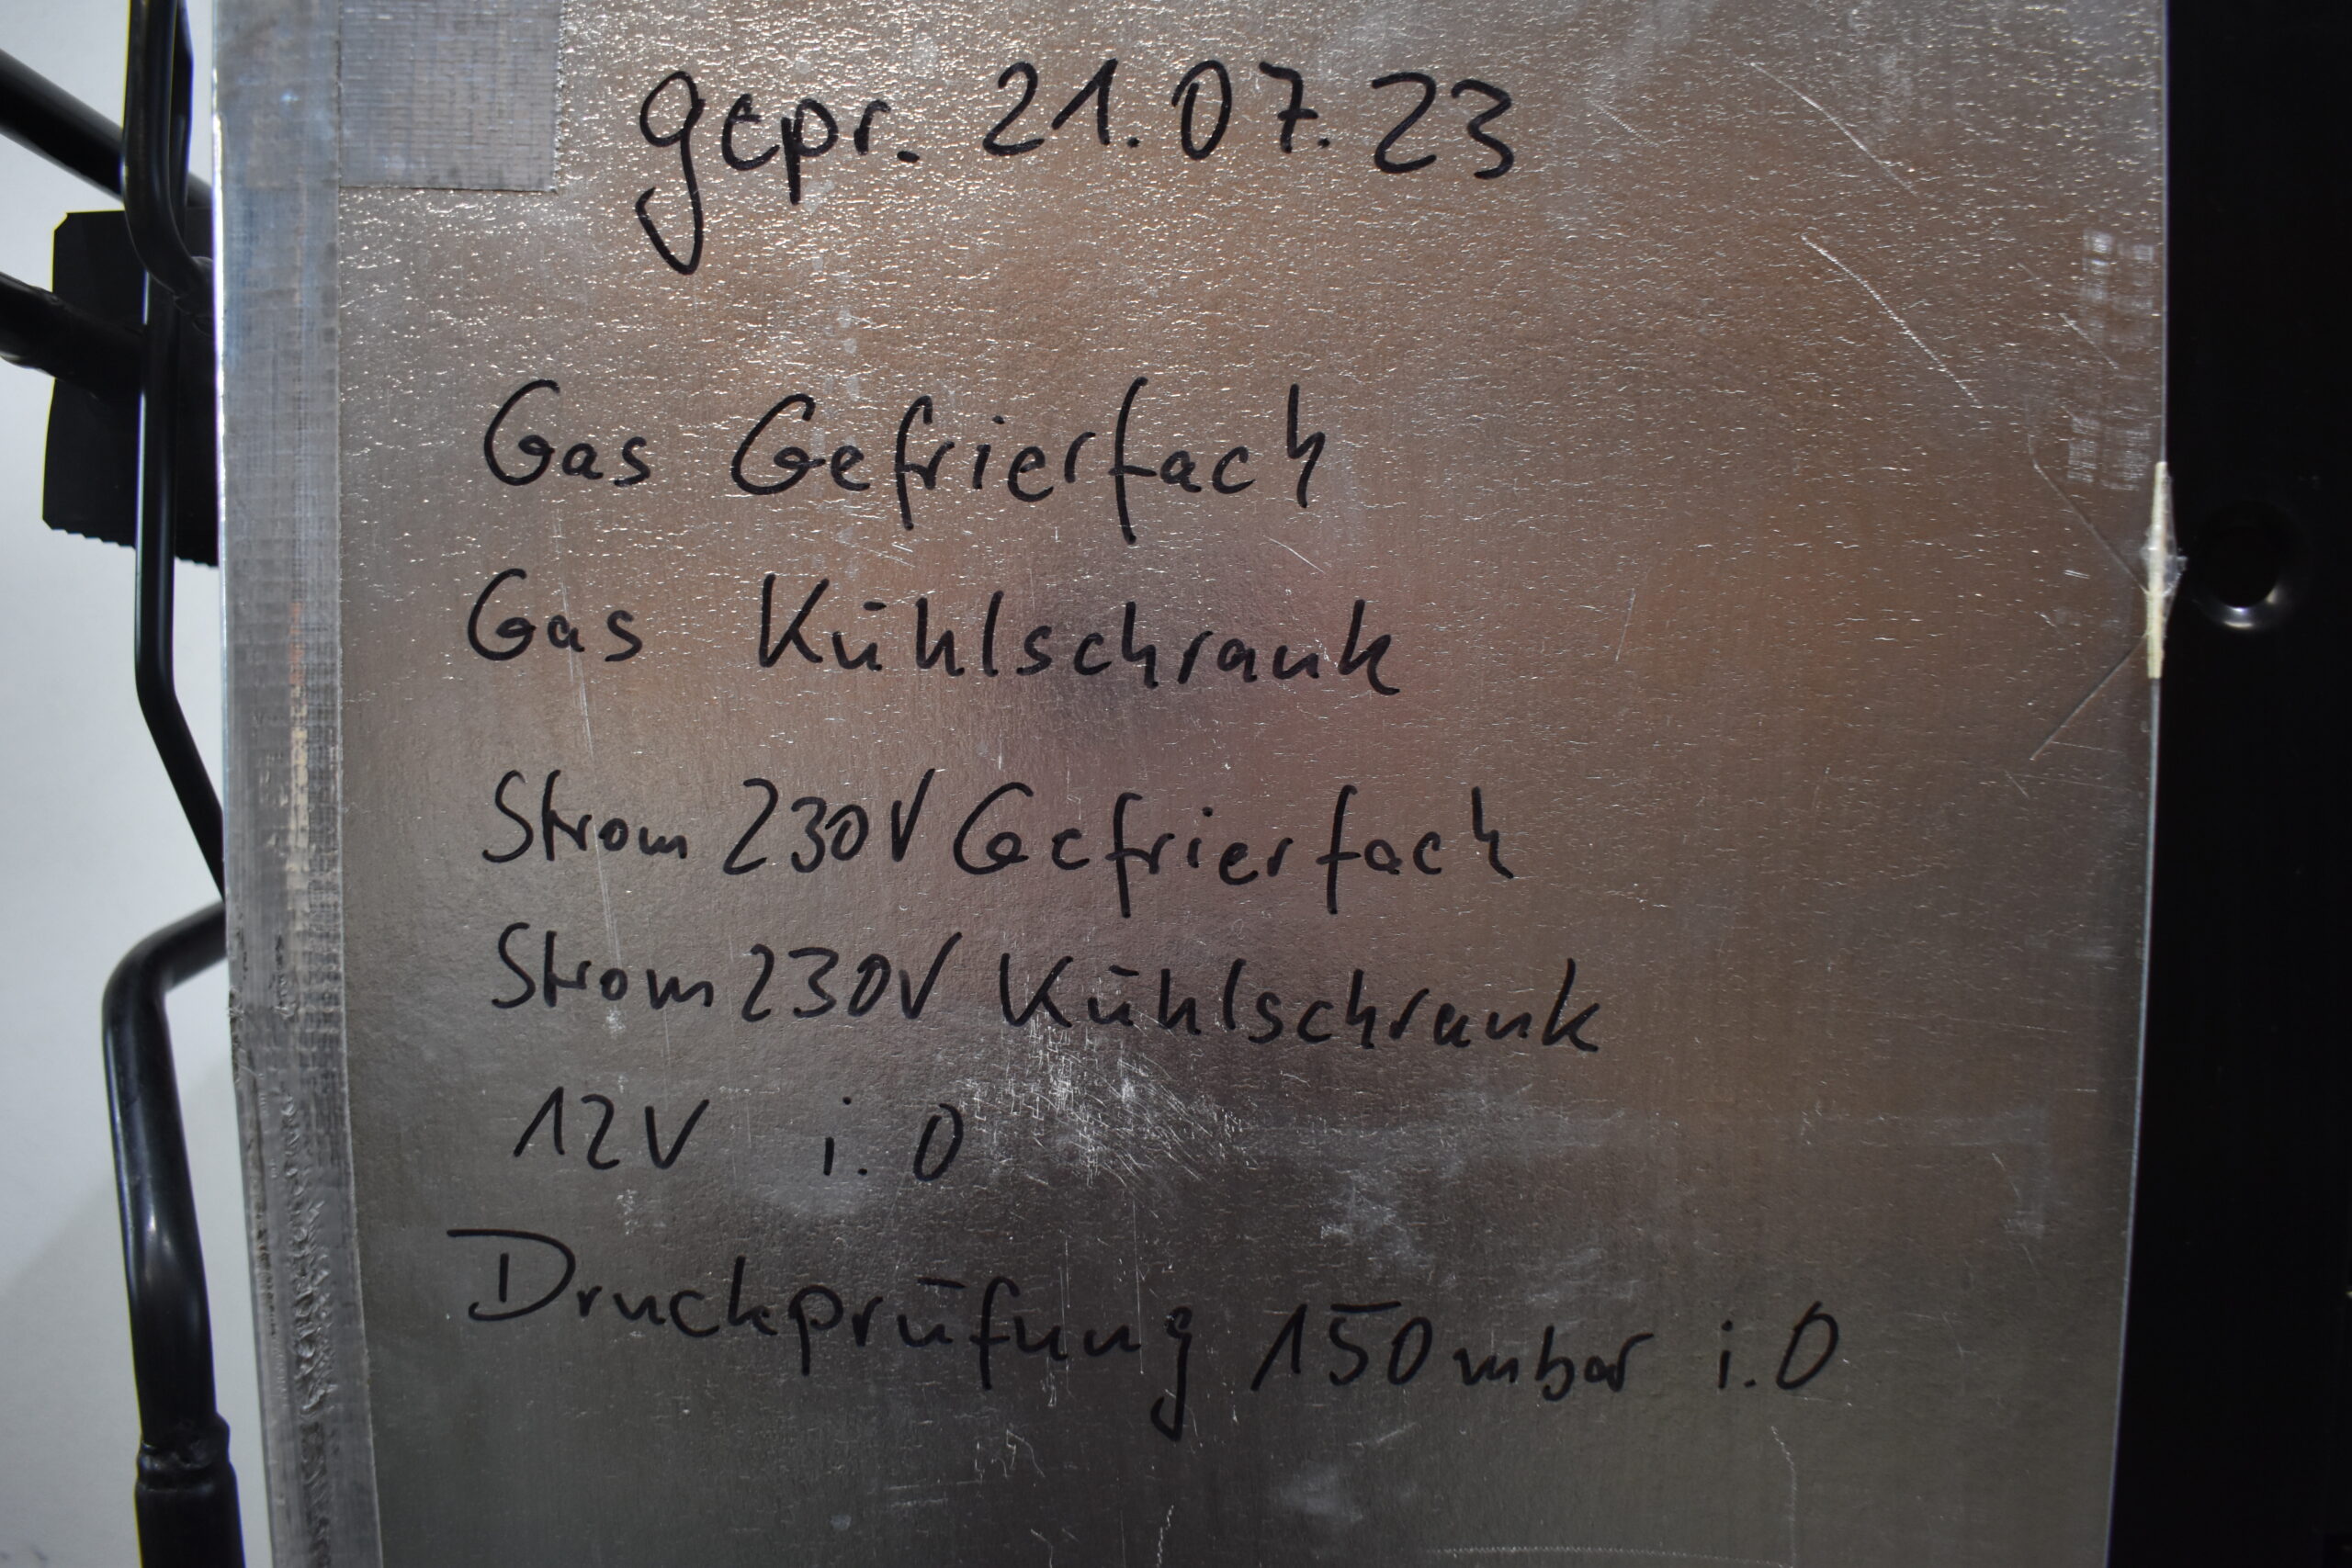 gepr. 21.07.23
Gas Gefrierfach
Gas Kühlschrank
Strom 230V Gefrierfach
Strom 230V Kühlschrank
12V i.O
Druckprüfung 150mbar i.O